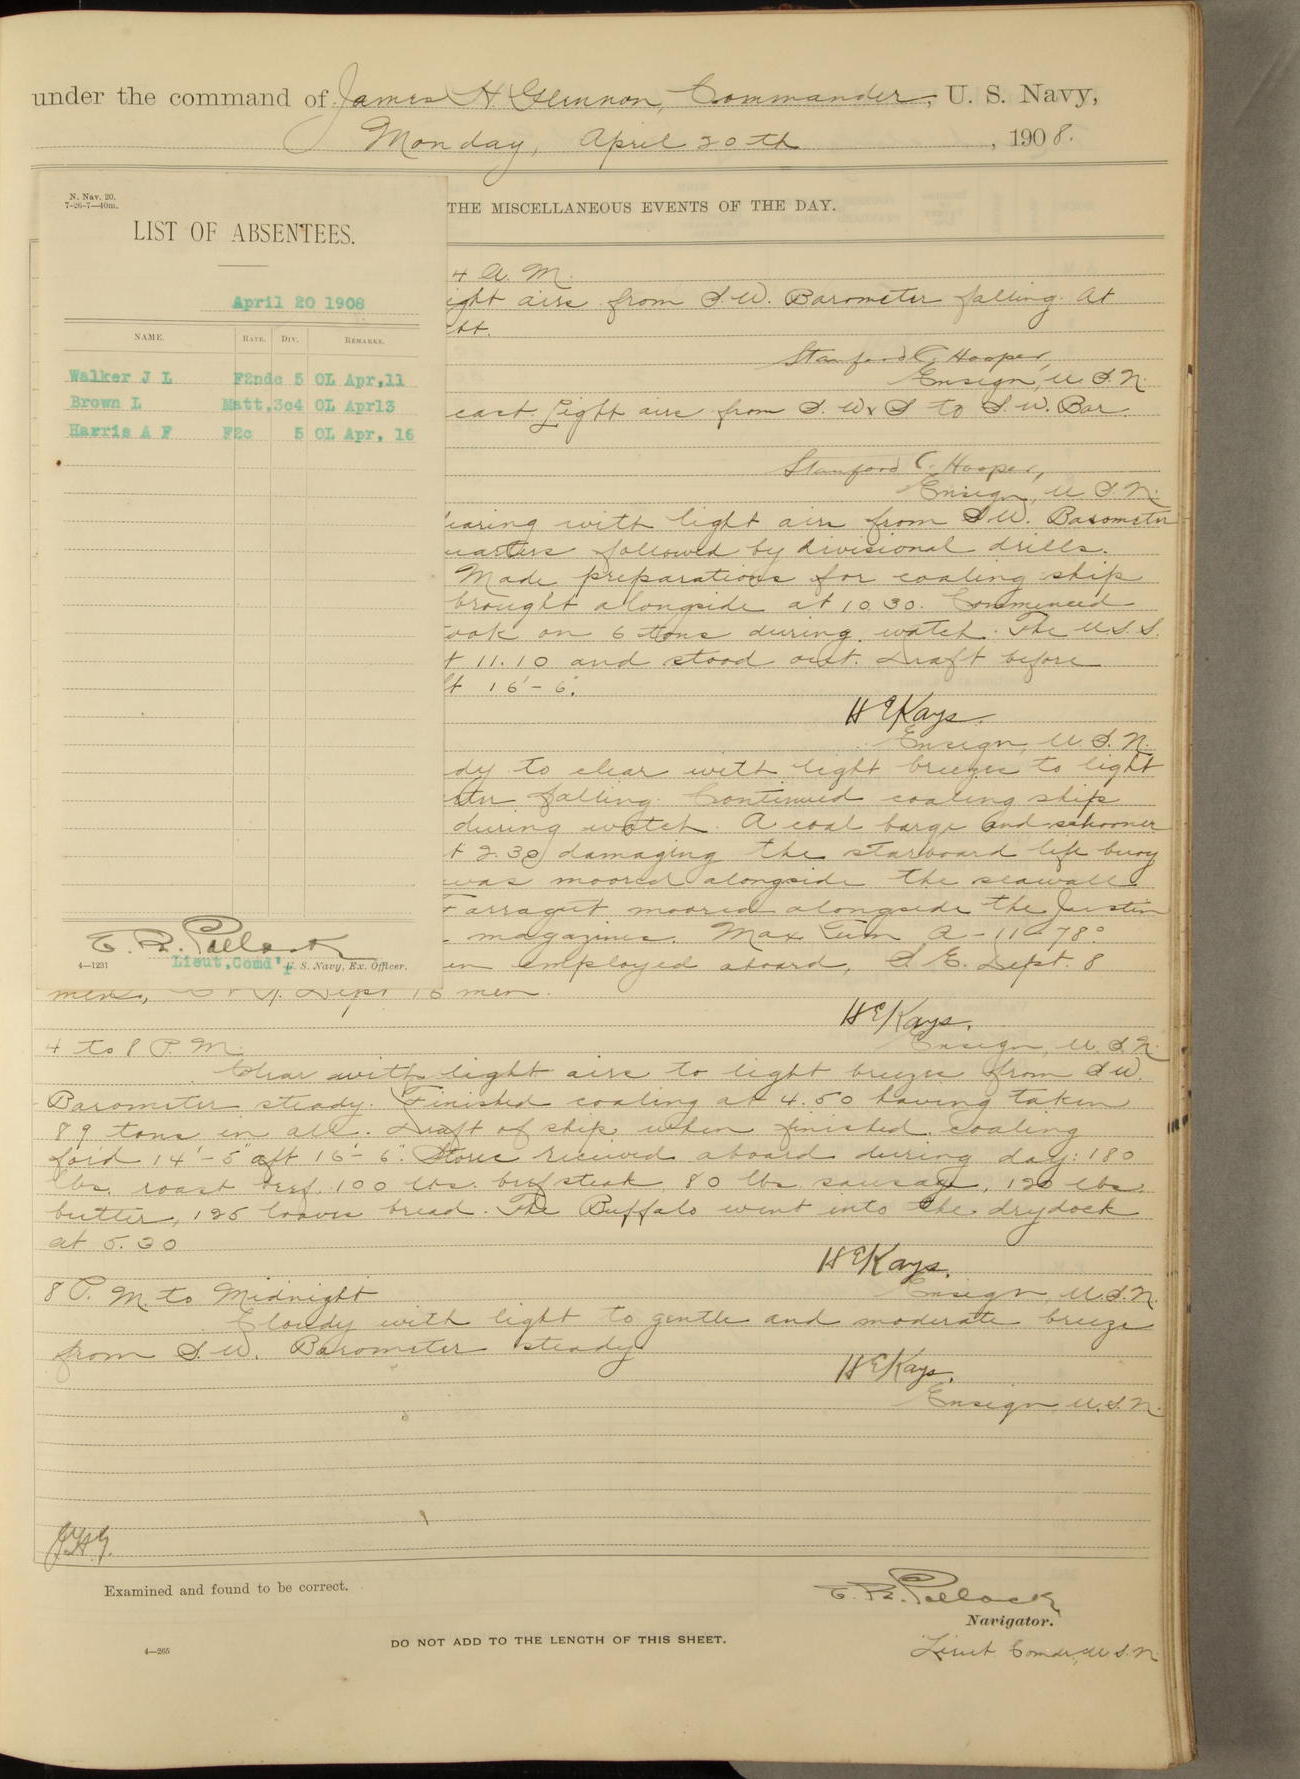 under the command of James H Glennon, Commander, U. S. Navy,
Monday, April 20th, 1908.
N. Nav. 20.
7-26-7—40m.
LIST OF ABSENTEES.
April 20 1908
NAME. RATE. DIV. REMARKS.
Walker J L F2ndc 5 OL Apr,11
Brown L Matt,3c4 OL Apr13
Harris A F F2c 5 OL Apr, 16
C. R. Pollock
Lieut,Comd'r
4—1231 U. S. Navy, Ex. Officer.
THE MISCELLANEOUS EVENTS OF THE DAY.
4 A. M.
ight airs from S.W. Barometer falling. At
Stanford C. Hooper,
Ensign, U.S.N.
cast. Light airs from S. W x S to S.W. Bar.
Stanford C. Hooper,
Ensign, U.S.N.
earing with light airs from S.W. Barometer
uarters followed by divisional drills.
Made preparations for coaling ship
brought alongside at 10.30. Commenced
ook on 6 tons during watch. The U.S.S.
t 11.10 and stood out. Draft before
ft 16'-6".
H E Kays.
Ensign, U.S.N.
dy to clear with light breezes to light
eter falling. Continued coaling ship
during watch. A coal barge and schooner
t 2.30 damaging the starboard life buoy
was moored alongside the seawall
Farragut moored alongside the Justin
magazines. Max Tem A-11-78°
en employed aboard, S.E. Dept. 8
men, C & R. Dept 15 men.
H E Kays.
Ensign, U.S.N.
4 to 8 P.M.
Clear with light airs to light breezes from S.W.
Barometer steady. Finished coaling at 4.50 having taken
89 tons in all. Draft of ship when finished coaling
for'd 14'-5" aft 16'-6". Stores received aboard during day: 180
lbs. roast beef, 100 lbs. beefsteak, 80 lbs sausage, 120 lbs.
butter, 125 loaves bread. The Buffalo went into the drydock
at 5.30
H E Kays.
Ensign, U.S.N.
8 P.M. to Midnight
Cloudy with light to gentle and moderate breeze
from S.W. Barometer steady
H E Kays.
Ensign U.S.N.
J.H.G.
Examined and found to be correct.
C. R. Pollock
Navigator.
Lieut Comdr, U.S.N.
4—265
DO NOT ADD TO THE LENGTH OF THIS SHEET.